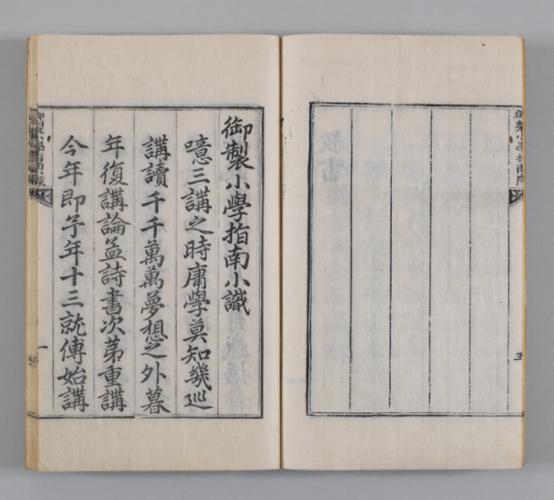 御製小學指南序
五
御製小學指南小識
噫三講之時庸學莫知幾巡
講讀千千萬萬夢想之外暮
年復講論孟詩書次苐重講
今年即予年十三就傅始講
一